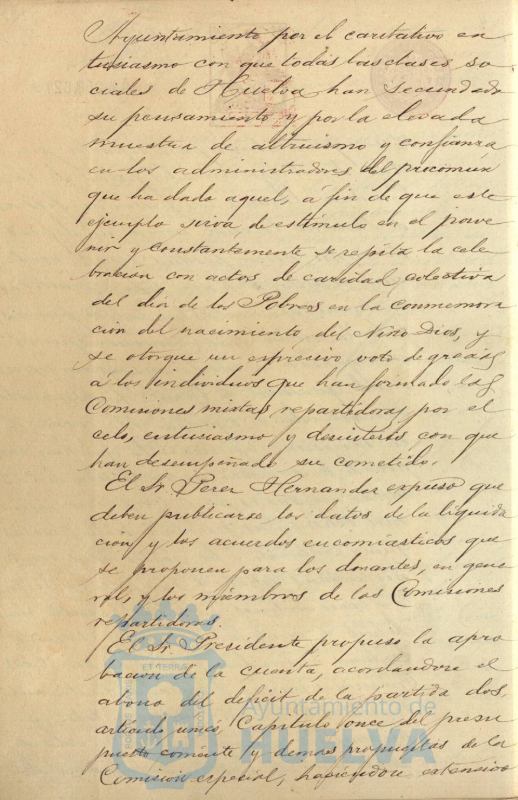 Ayuntamiento por el caritativo en
tusiasmo con que todas las clases so
ciales de Huelva han secundado
su pensamiento y por la elevada
muestra de altruismo y confianza
en los administradores del procomun
que ha dado aquel, á fin de que este
ejemplo sirva de estímulo en el porve
nir y constantemente se repita la cele
bración con actos de caridad colectiva
del dia de los Pobres en la conmemora
ción del nacimiento del Niño Dios, y
se otorgue un expresivo voto de gracias
á los individuos que han formado las
Comisiones mixtas repartidoras por el
celo, entusiasmo y desinterés con que
han desempeñado su cometido.
El Sr. Perez Hernandez expuso que
deben publicarse los datos de la liquida
ción y los acuerdos encomiásticos que
se proponen para los donantes, en gene
ral, y los miembros de las Comisiones
repartidoras.
El Sr. Presidente propuso la apro
bacion de la cuenta, acordandose el
abono del deficit de la partida dos,
artículo unico, Capítulo once del presu
puesto corriente y demas propuestas de la
Comisión especial, haciendose extensivo
ET TERRÆ
Ayuntamiento de
HUELVA